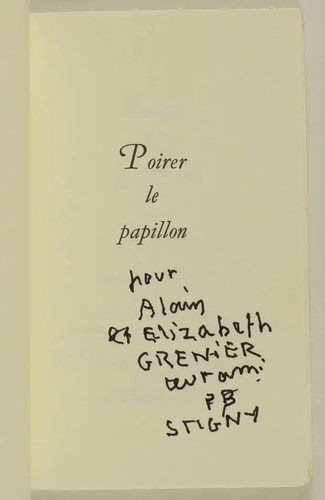 Poirer
le
papillon
pour
Alain
et Elizabeth
GRENIER
leur ami
PB
STIGNY